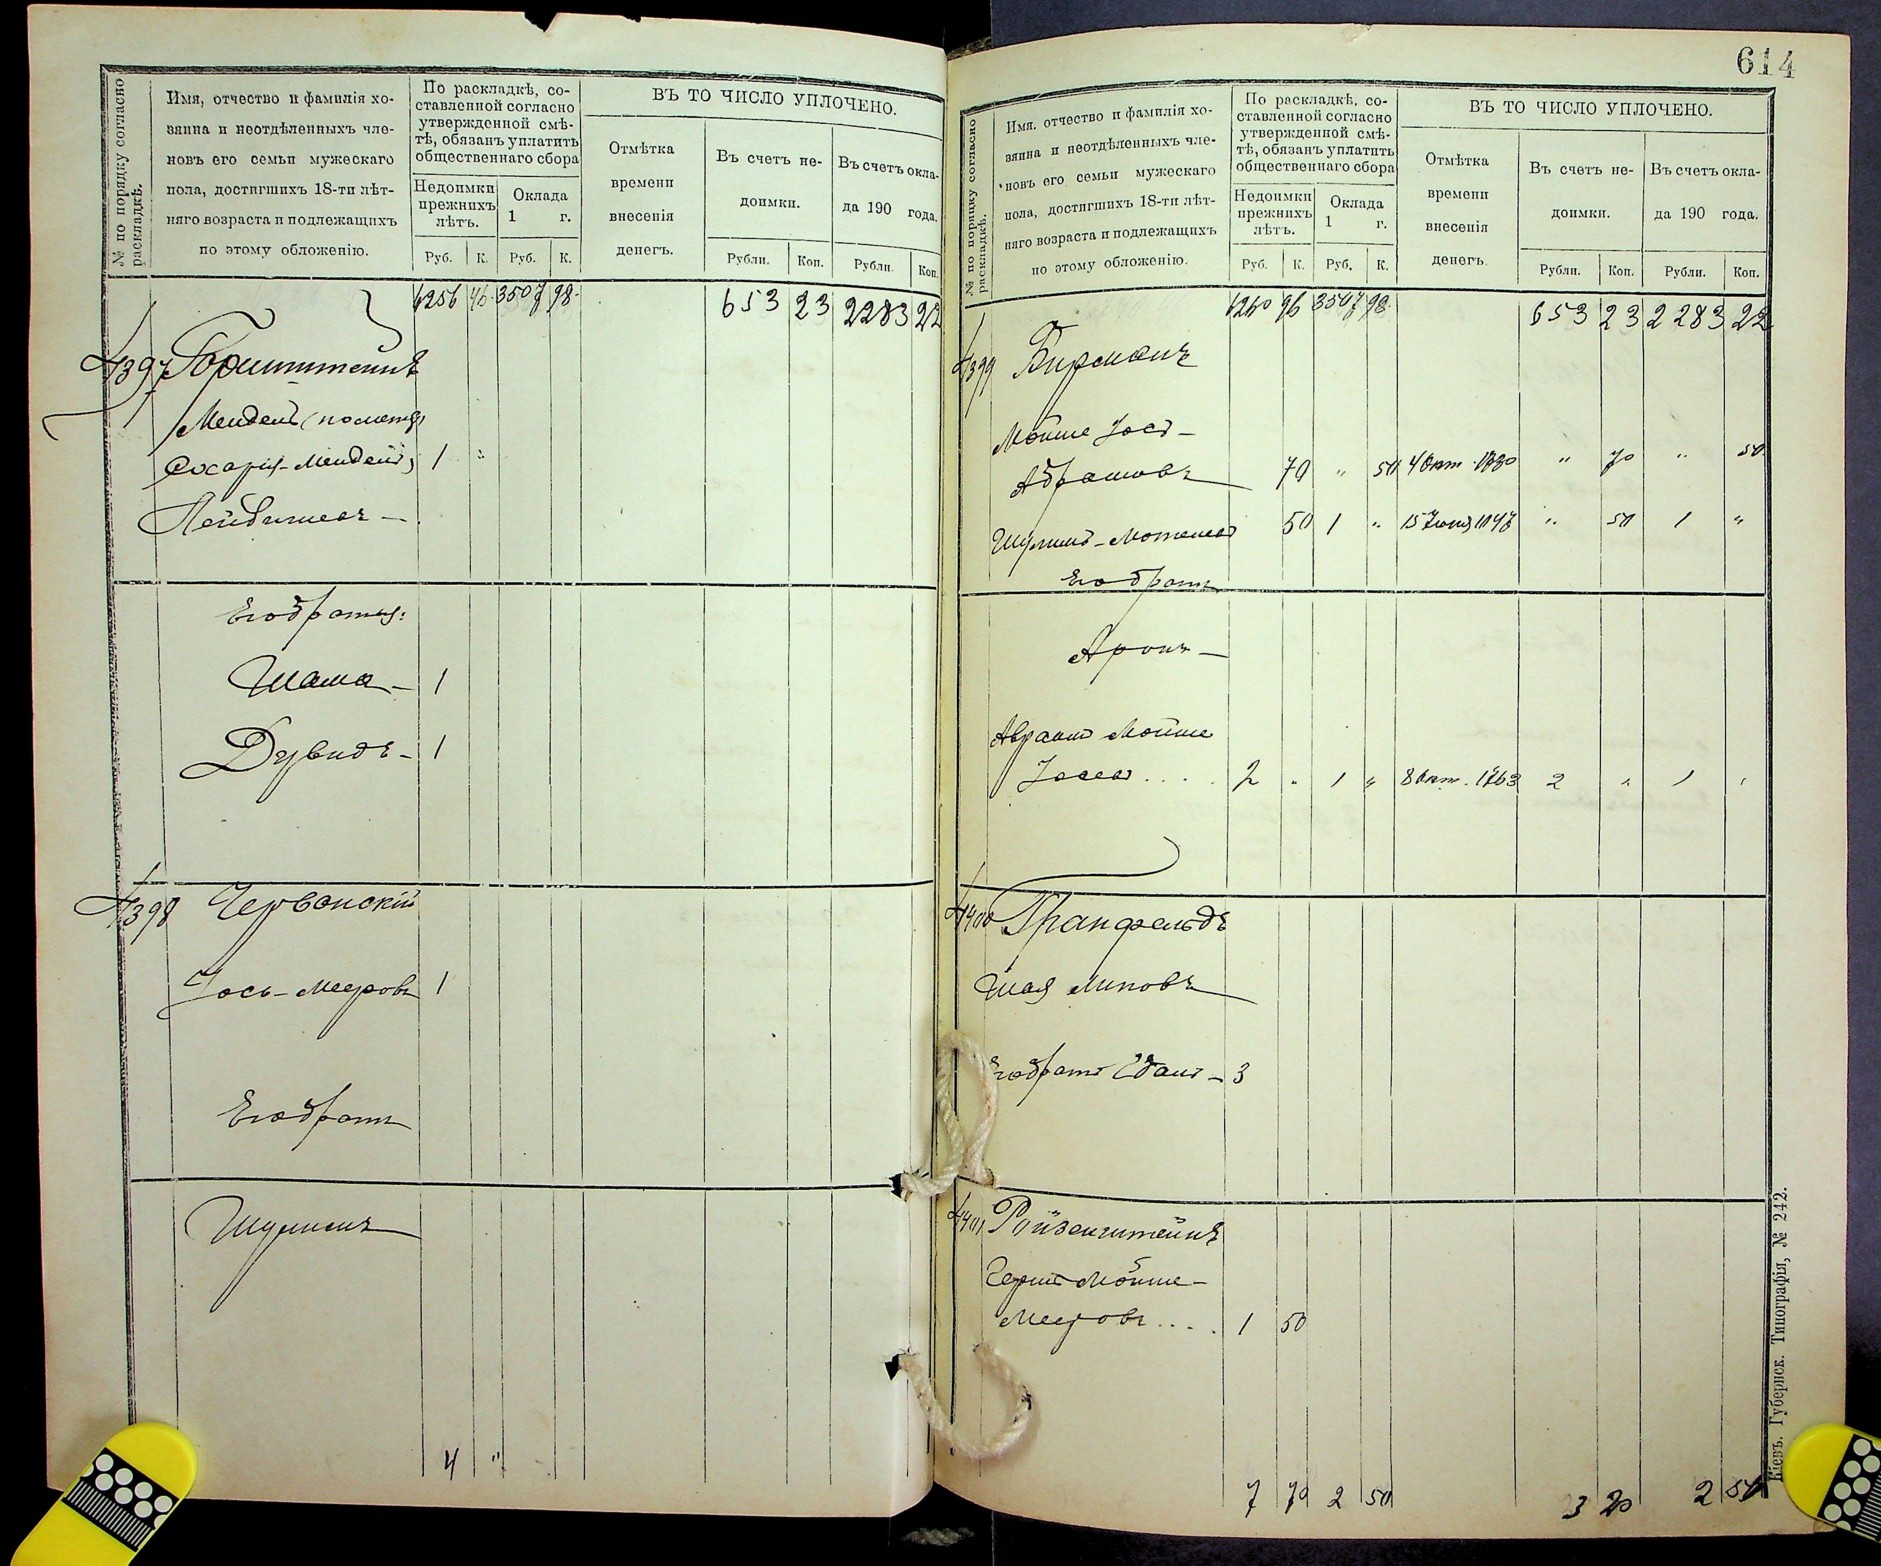 № по порядку согласно раскладкѣ.
Имя, отчество и фамилія хо-
зяина и неотдѣленныхъ чле-
новъ его семьи мужескаго
пола, достигшихъ 18-ти лѣт-
няго возраста и подлежащихъ
по этому обложенію.
По раскладкѣ, со-
ставленной согласно
утвержденной смѣ-
тѣ, обязанъ уплатить
общественнаго сбора
Недоимки
прежнихъ
лѣтъ.
Оклада
1 г.
Руб. К. Руб. К.
ВЪ ТО ЧИСЛО УПЛОЧЕНО.
Отмѣтка
времени
внесенія
денегъ.
Въ счетъ не-
доимки.
Въ счетъ окла-
да 190 года.
Рубли. Коп. Рубли Коп.
6256 96 3507 98 653 23 2283 22
4397
Мендель
Сахарія-Мендель 1 "
Лейбишевъ
Его братья:
Шама 1
Дувидъ 1
4398 Червонскій
Іось-Мееровъ 1
Его братъ
Шулимъ
4 "
614
№ по порядку согласно раскладкѣ.
Имя, отчество и фамилія хо-
зяина и неотдѣленныхъ чле-
новъ его семьи мужескаго
пола, достигшихъ 18-ти лѣт-
няго возраста и подлежащихъ
по этому обложенію.
По раскладкѣ, со-
ставленной согласно
утвержденной смѣ-
тѣ, обязанъ уплатить
общественнаго сбора
Недоимки
прежнихъ
лѣтъ.
Оклада
1 г.
Руб. К. Руб. К.
ВЪ ТО ЧИСЛО УПЛОЧЕНО.
Отмѣтка
времени
внесенія
денегъ.
Въ счетъ не-
доимки.
Въ счетъ окла-
да 190 года.
Рубли. Коп. Рубли. Коп.
6260 96 3507 98 653 23 2283 22
4399 Бирманъ
Мойше Іось
Абрамовъ 70 " 50 4 Окт. 1880 " 70 " 50
50 1 " " 50 1 "
Его братъ
Аронъ
Аврамъ Мойше
2 " 1 " 8 Окт. 1763 2 " 1
4400 Гранфельдъ
Шая Липовъ
Его братъ 3
4401 Ройзенштейнъ
Гершъ Мойше
Мееровъ 1 50
7 70 2 50 3 20 2 50
Кіевъ. Губернск. Типографія, № 242.